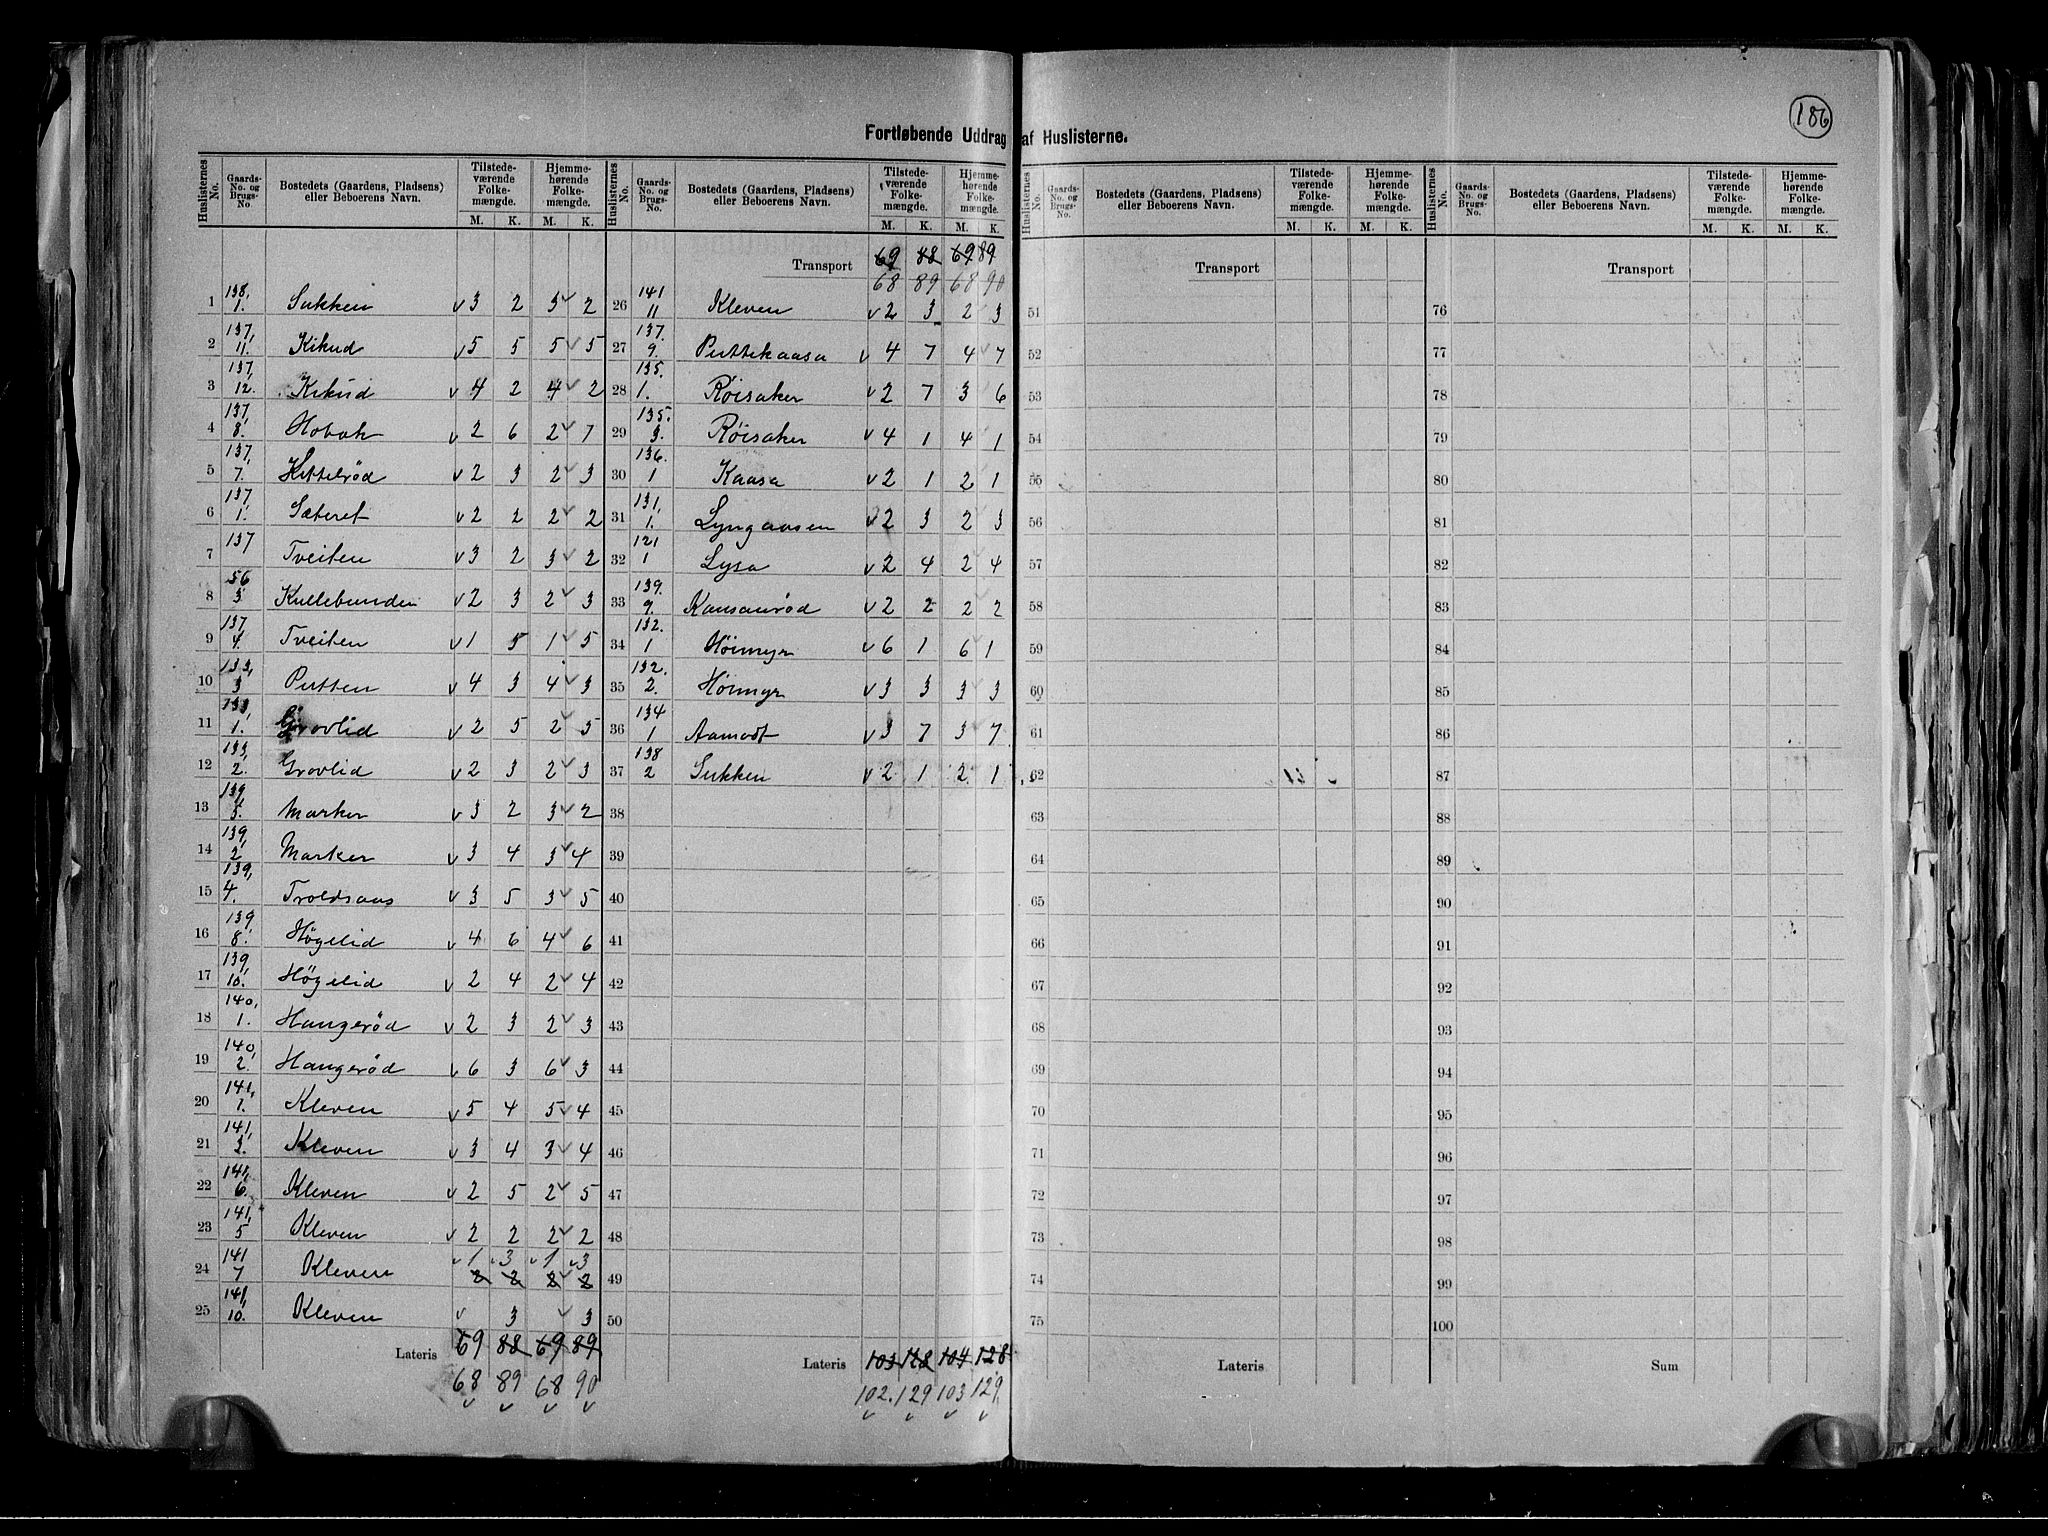 186
Fortløbende Uddrag af Huslisterne.
Huslisternes No. | Gaards- No. og Brugs- No. | Bostedets (Gaardens, Pladsens) eller Beboerens Navn. | Tilstede- værende Folke- mængde. M. K. | Hjemme- hørende Folke- mængde. M. K.
1 138, 1. Sukken v 3 2 3 v 2
2 137, 11. Kikud v 5 5 5 v 5
3 137, 12. Kikud v 4 2 4 v 2
4 137, 8. Hobok v 2 6 2 v 7
5 137, 7. Kittelrød v 2 3 2 v 3
6 137, 1. Sæteret v 2 2 2 v 2
7 137 Tveiten v 3 2 3 v 2
8 56 3 Kullebunden v 2 3 2 v 3
9 137, 4. Tveiten v 1 5 1 v 5
10 133, 3 Putten v 4 3 4 v 3
11 133, 1. Grovlid v 2 5 2 v 5
12 133, 2. Grovlid v 2 3 2 v 3
13 139, 5. Marker v 3 2 3 v 2
14 139, 2. Marker v 3 4 3 v 4
15 139, 4. Troldsaas v 3 5 3 v 5
16 139, 8. Høgelid v 4 6 4 v 6
17 139, 10. Høgelid v 2 4 2 v 4
18 140, 1. Haugerød v 2 3 2 v 3
19 140, 2. Haugerød v 6 3 6 v 3
20 141, 1. Kleven v 5 4 5 v 4
21 141, 2. Kleven v 3 4 3 v 4
22 141, 6. Kleven v 2 5 2 v 5
23 141, 5 Kleven v 2 2 2 v 2
24 141 7 Kleven v 1 v 3 v 1 v 3
2 2 2 v 2
25 141, 10. Kleven v 3 v 3
Lateris 69 88 69 89
68 89 68 90
v v v v
Huslisternes No. | Gaards- No. og Brugs- No. | Bostedets (Gaardens, Pladsens) eller Beboerens Navn. | Tilstede- værende Folke- mængde. M. K. | Hjemme- hørende Folke- mængde. M. K.
Transport 69 88 69 89
68 89 68 90
26 141 11 Kleven v 2 3 2 v 3
27 137. 9. Puttekaasa v 4 7 4 v 7
28 135. 1. Røisaker v 2 7 3 6
29 135. 3. Røisaker v 4 1 4 1
30 136. 1 Kaasa v 2 1 2 1
31 131, 1. Lyngaasen v 2 3 2 3
32 121 1 Lysa v 2 4 2 4
33 139. 9. Kausaurød v 2 2 2 2
34 132. 1 Høimyr v 6 1 6 1
35 132. 2. Høimyr v 3 3 3 3
36 134 1 Aamodt v 3 7 3 7
37 138 2 Sukken v 2 1 2 1
38
39
40
41
42
43
44
45
46
47
48
49
50
Lateris 103 128 104 128
102. 129 103 129
v v v v
Huslisternes No. | Gaards- No. og Brugs- No. | Bostedets (Gaardens, Pladsens) eller Beboerens Navn. | Tilstede- værende Folke- mængde. M. K. | Hjemme- hørende Folke- mængde. M. K.
Transport
51
52
53
54
55
56
57
58
59
60
61
62
63
64
65
66
67
68
69
70
71
72
73
74
75
Lateris
Huslisternes No. | Gaards- No. og Brugs- No. | Bostedets (Gaardens, Pladsens) eller Beboerens Navn. | Tilstede- værende Folke- mængde. M. K. | Hjemme- hørende Folke- mængde. M. K.
Transport
76
77
78
79
80
81
82
83
84
85
86
87
88
89
90
91
92
93
94
95
96
97
98
99
100
Sum